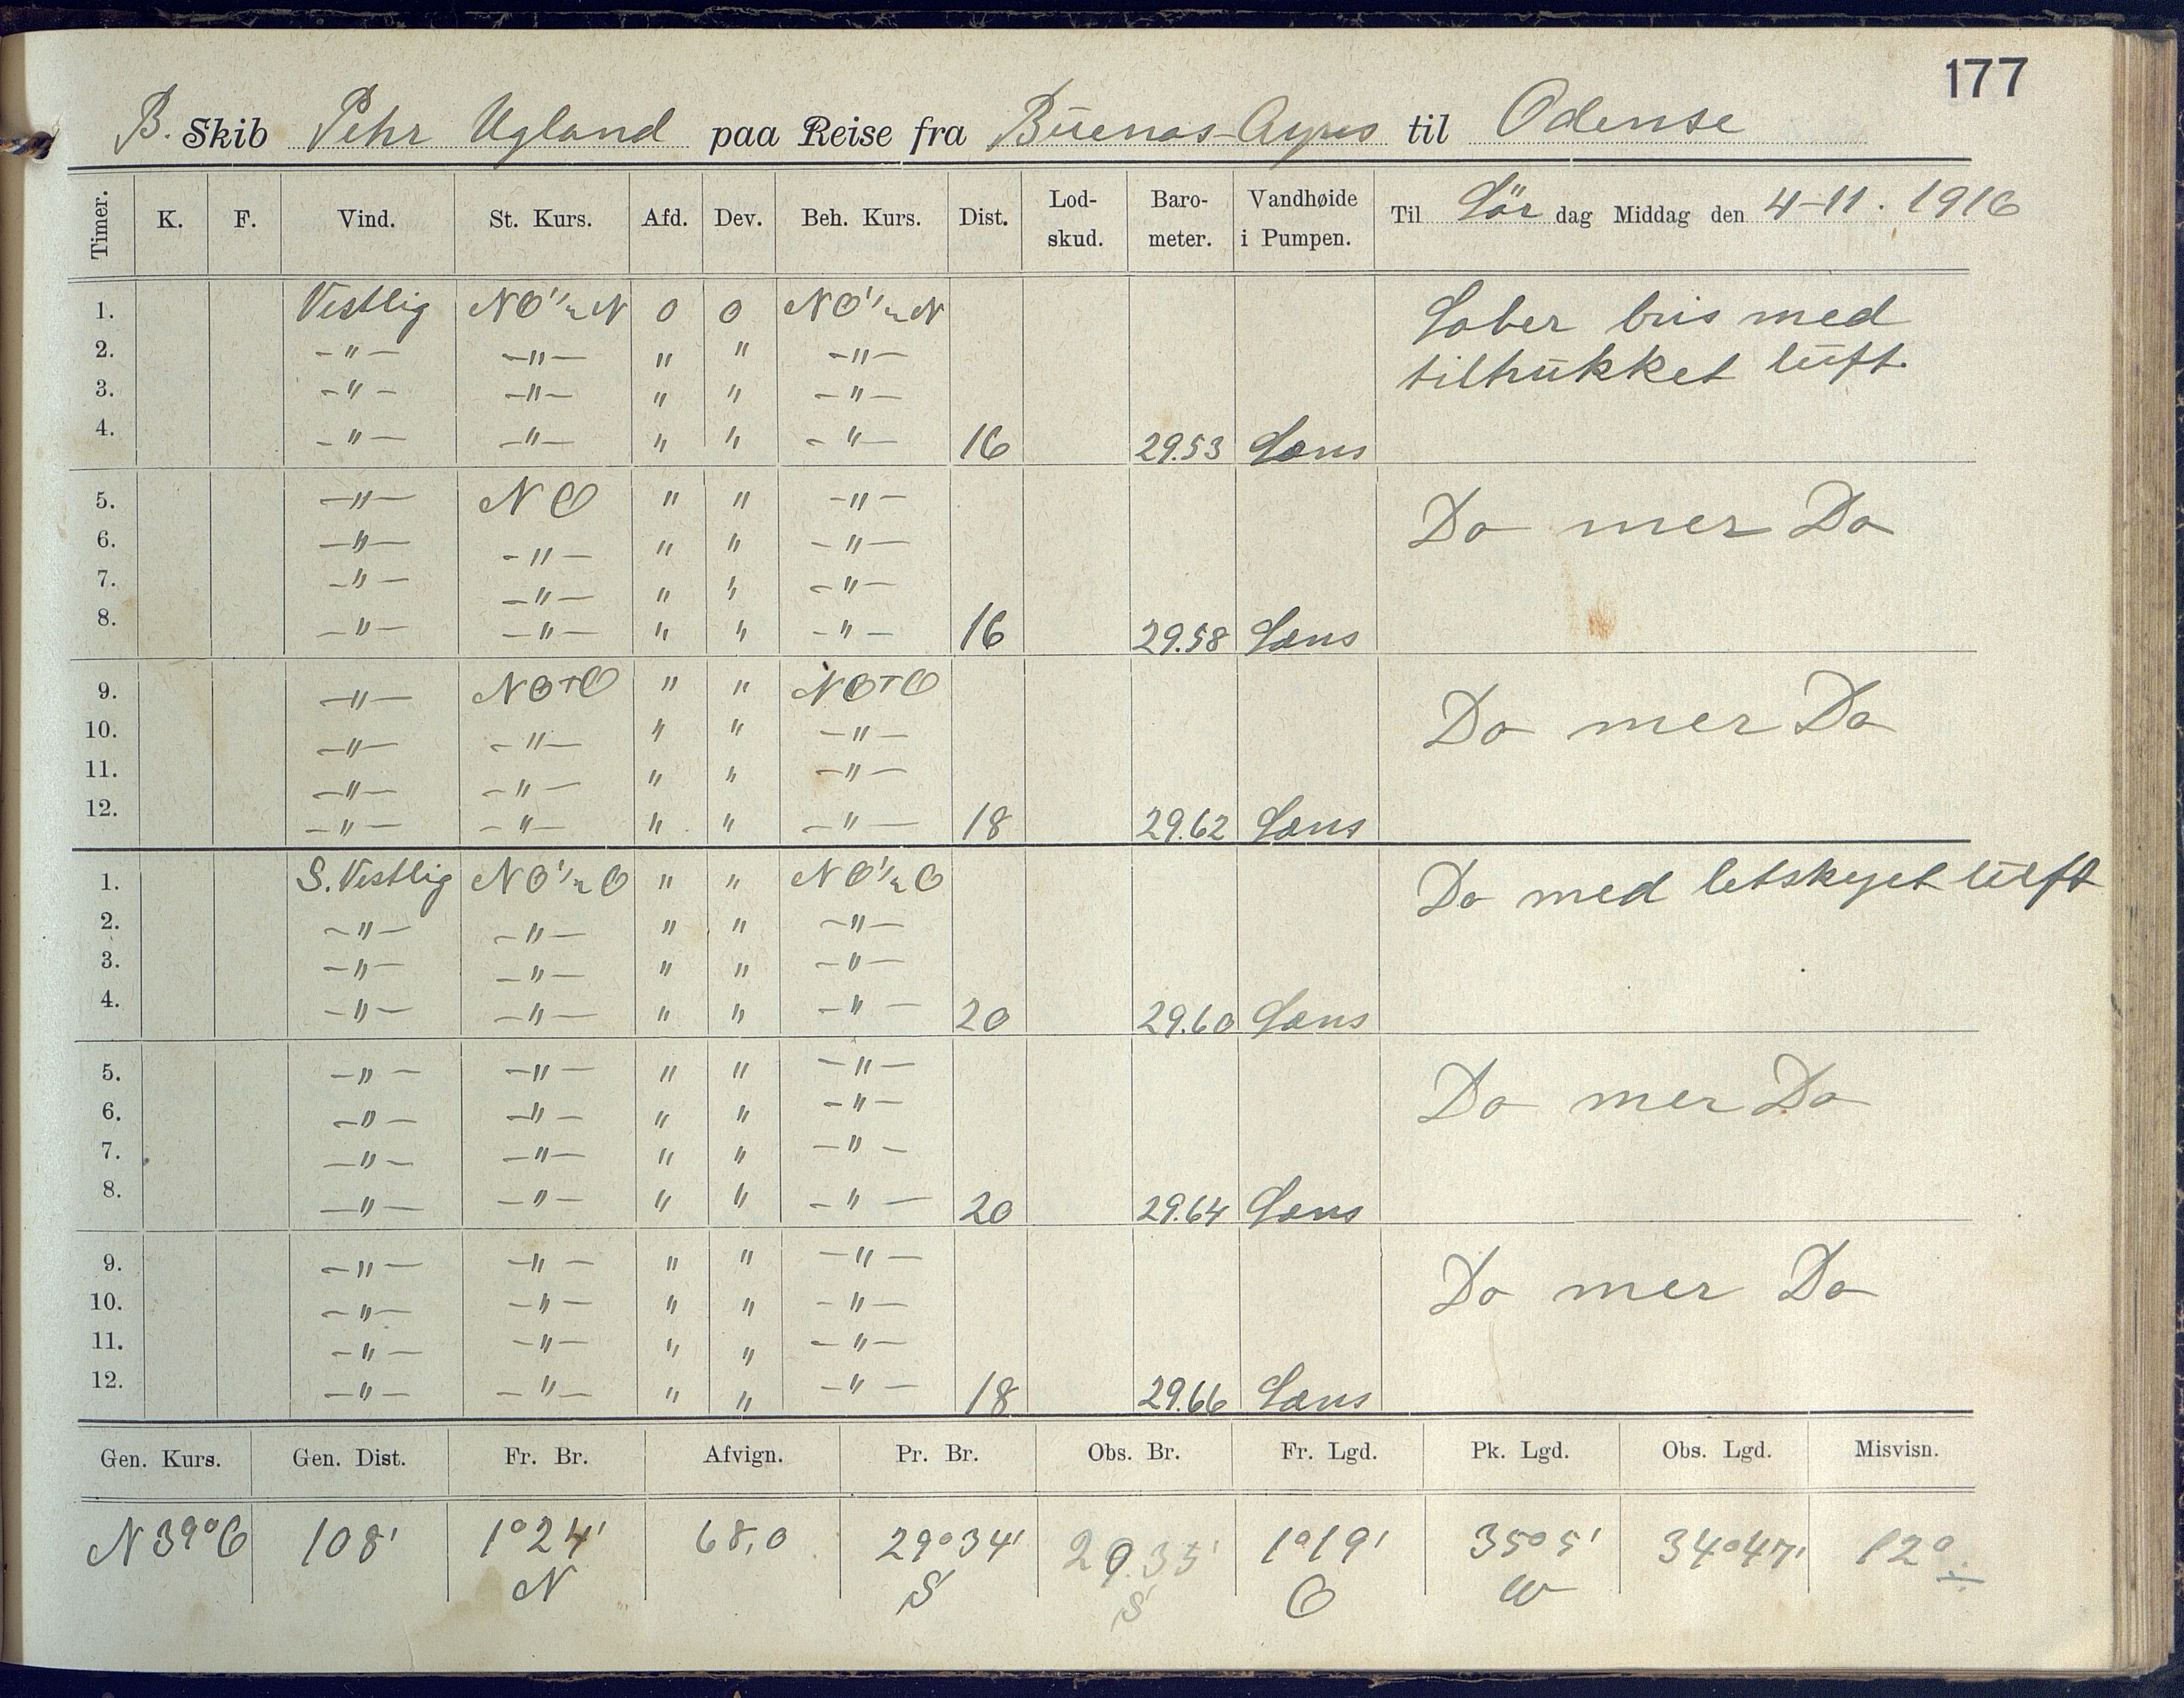 177
B. Skib Pehr Ugland paa Reise fra Buenos-Ayres til Odense
Timer. K. F. Vind. St. Kurs. Afd. Dev. Beh. Kurs. Dist. Lod-skud. Baro-meter. Vandhøide i Pumpen. Til Lör dag Middag den 4-11. 1916
1. Vestlig NO½N 0 0 NO½N Laber bris med
2. -"- -"- " " -"- tiltrukket luft.
3. -"- -"- " " -"-
4. -"- -"- " " -"- 16 29.53 Læns
5. -"- NO " " -"- Do mer Do
6. -"- -"- " " -"-
7. -"- -"- " " -"-
8. -"- -"- " " -"- 16 29.58 Læns
9. -"- NOTO " " NOTO Do mer Do
10. -"- -"- " " -"-
11. -"- -"- " " -"-
12. -"- -"- " " -"- 18 29.62 Læns
1. S. Vestlig NO½O " " NO½O Do med letskyet luft
2. -"- -"- " " -"-
3. -"- -"- " " -"-
4. -"- -"- " " -"- 20 29.60 Læns
5. -"- -"- " " -"- Do mer Do
6. -"- -"- " " -"-
7. -"- -"- " " -"-
8. -"- -"- " " -"- 20 29.64 Læns
9. -"- -"- " " -"- Do mer Do
10. -"- -"- " " -"-
11. -"- -"- " " -"-
12. -"- -"- " " -"- 18 29.66 Læns
Gen. Kurs. Gen. Dist. Fr. Br. Afvign. Pr. Br. Obs. Br. Fr. Lgd. Pk. Lgd. Obs. Lgd. Misvisn.
N 39° O 108' 1°24' 68,0 29°34' 29.35' 1°19' 35°5' 34°47' 12°
N S S O W